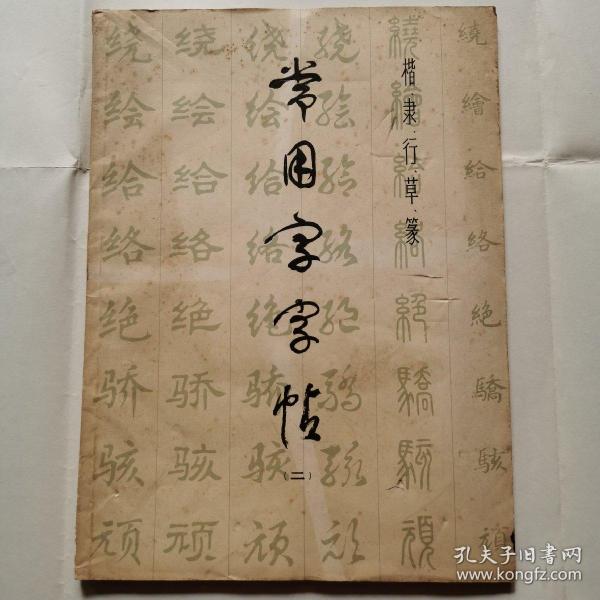 楷·隶·行·草·篆
常用字字帖
（二）
绕 绕 绕 繞 繞 繞
绘 绘 绘 繪 繪 繪
给 给 给 給 給 給
络 络 络 絡 絡 絡
绝 绝 绝 絕 絕 絕
骄 骄 骄 驕 驕 驕
骇 骇 骇 駭 駭 駭
顽 顽 顽 頑 頑 頑
孔夫子旧书网
www.kongfz.com